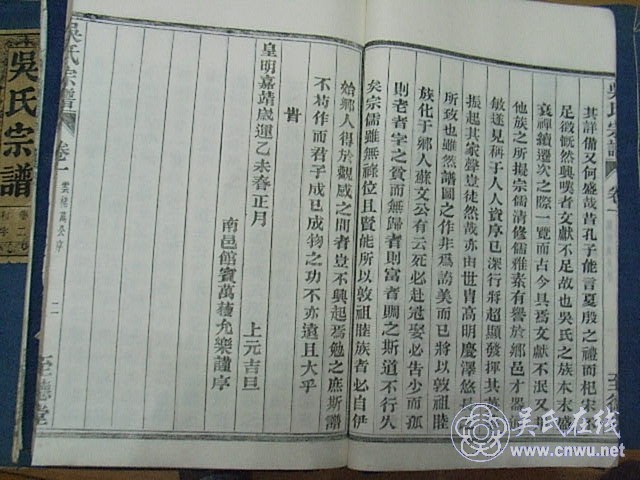 其詳備又何盛哉昔孔子能言夏殷之禮而杞宋
足徵慨然興嘆者文献不足故也吳氏之族本末盛
衰禪續遷次之際一覽而古今具焉文献不泯又
他族之所擬宗儒清修儒雅素有譽於鄉邑才器
敏達見稱于人人資序已深行將超顯發揮其蓄
振起其家聲豈徒然哉亦由世胄高明慶澤悠長
所致也雖然譜圖之作非爲誇美而已將以敦祖睦
族化于鄉人蘇文公有云死必赴冠娶必告少而孤
則老者字之貧而無歸者則富者賙之斯道不行久
矣宗儒雖無祿位且賢能所以敦祖睦族者必自伊
始鄉人得於觀感之間者豈不興起焉勉之庶斯譜
不苟作而君子成已成物之功不亦遠且大乎
旹
皇明嘉靖歲運乙未春正月
上元吉旦
南邑館賓萬
允樂謹序
吳氏宗譜
卷一
序
二
至德堂
吳氏宗譜
卷一
吳氏宗譜
卷
二
吴氏在线
www.cnwu.net